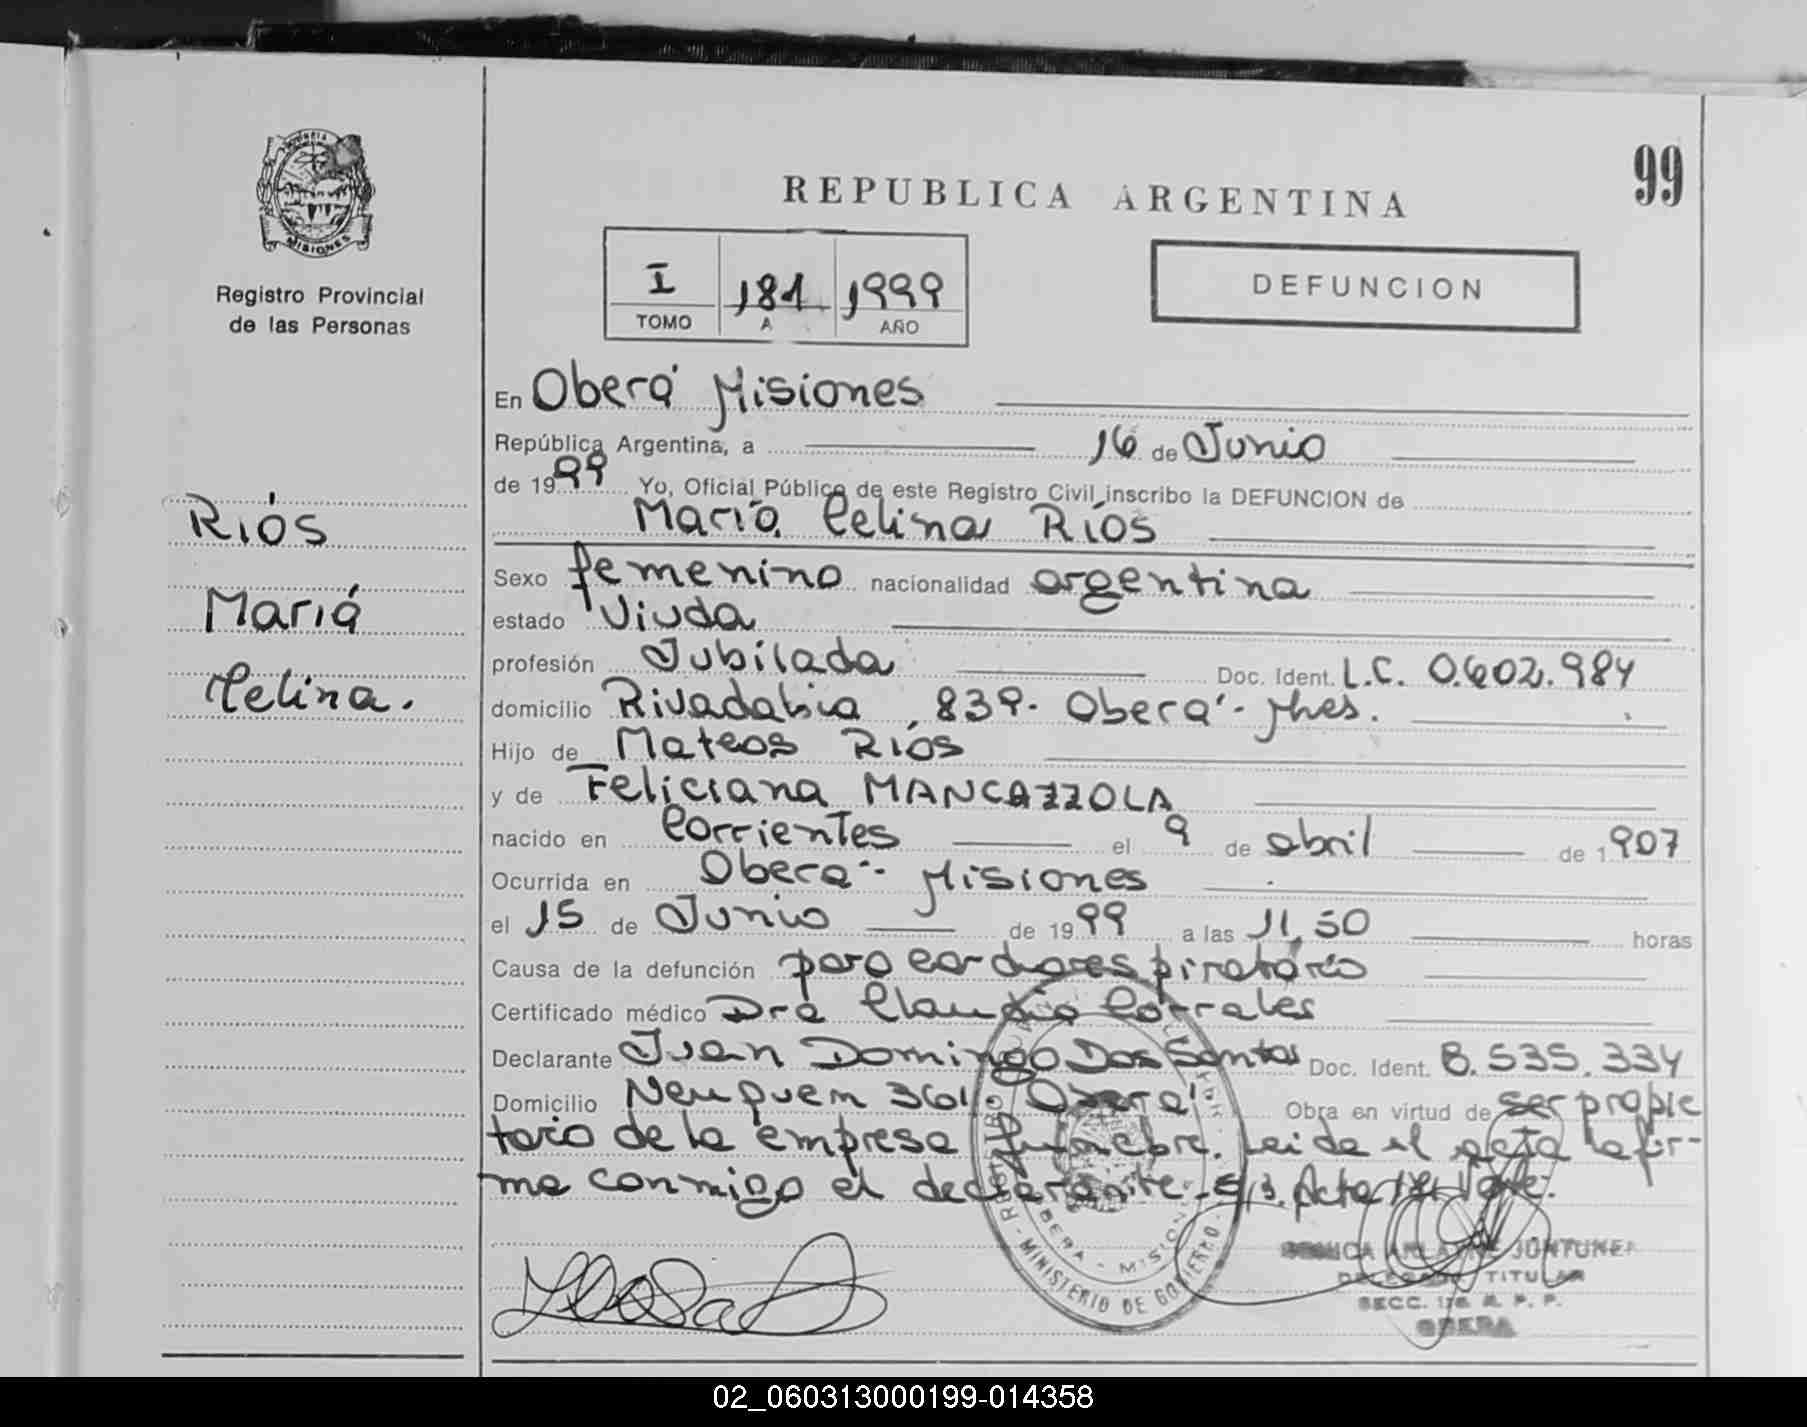 MISIONES
Registro Provincial
de las Personas
Ríos
María
Celina.
99
REPUBLICA ARGENTINA
I 181 1999
TOMO A AÑO
DEFUNCION
En Oberá Misiones
República Argentina, a 16 de Junio
de 1999 Yo, Oficial Público de este Registro Civil inscribo la DEFUNCION de
María Celina Ríos
Sexo femenino nacionalidad argentina
estado Viuda
profesión Jubilada Doc. Ident. L.C. 0.602.984
domicilio Rivadabia, 839- Oberá- Mnes.
Hijo de Mateos Ríos
y de Feliciana MANCAZZOLA
nacido en Corrientes el 9 de abril de 1907
Ocurrida en Oberá- Misiones
el 15 de Junio de 1999 a las 11,50 horas
Causa de la defunción paro cardiorespiratorio
Certificado médico Dra Claudia Corrales
Declarante Juan Domingo Dos Santos Doc. Ident. 8.535.334
Domicilio Neuquem 361- Oberá Obra en virtud de ser propie
tario de la empresa funebre. Leida el acta la fir-
ma conmigo el declarante- Acta 181 Vale.
MINISTERIO DE GOBIERNO
OBERA - MISIONES
JUNTUNEN
DELEGADA TITULAR
SECC. R. P. P.
OBERA
02_060313000199-014358